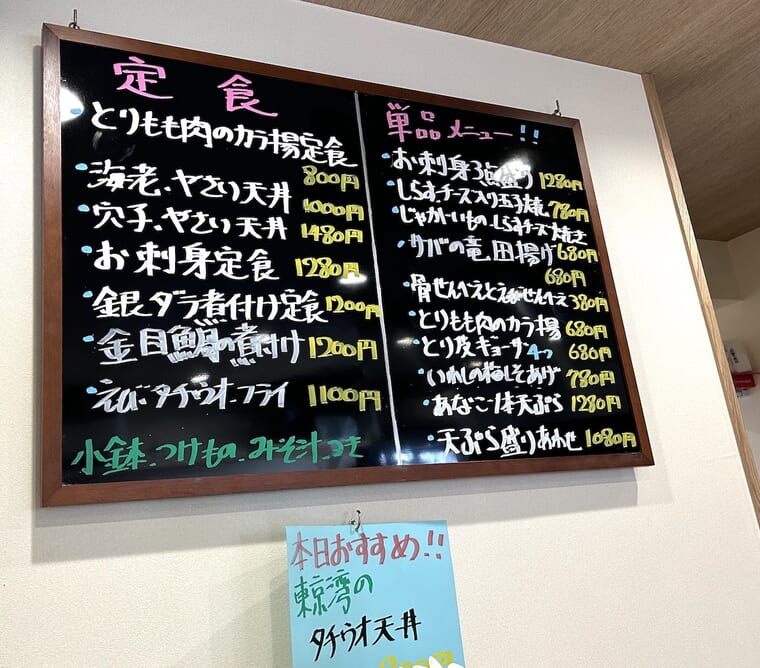 定食
とりもも肉のカラ揚定食
800円
海老、やさい天丼 1000円
穴子、やさい天丼 1480円
お刺身定食 1280円
銀ダラ煮付け定食 1200円
金目鯛の煮付け 1200円
えび・タチウオ・フライ 1100円
小鉢、つけもの、みそ汁つき
単品メニュー!!
お刺身3点盛り 1280円
しらすチーズ入り玉子焼 780円
じゃがいもの、しらすチーズ焼き
680円
サバの竜田揚げ
680円
骨せんべえとえびせんべえ 380円
とりもも肉のカラ揚 680円
とり皮ギョーザ4つ 680円
いわしの梅しそあげ 780円
あなご1本天ぷら 1280円
天ぷら盛りあわせ 1080円
本日おすすめ!!
東京湾の
タチウオ天丼